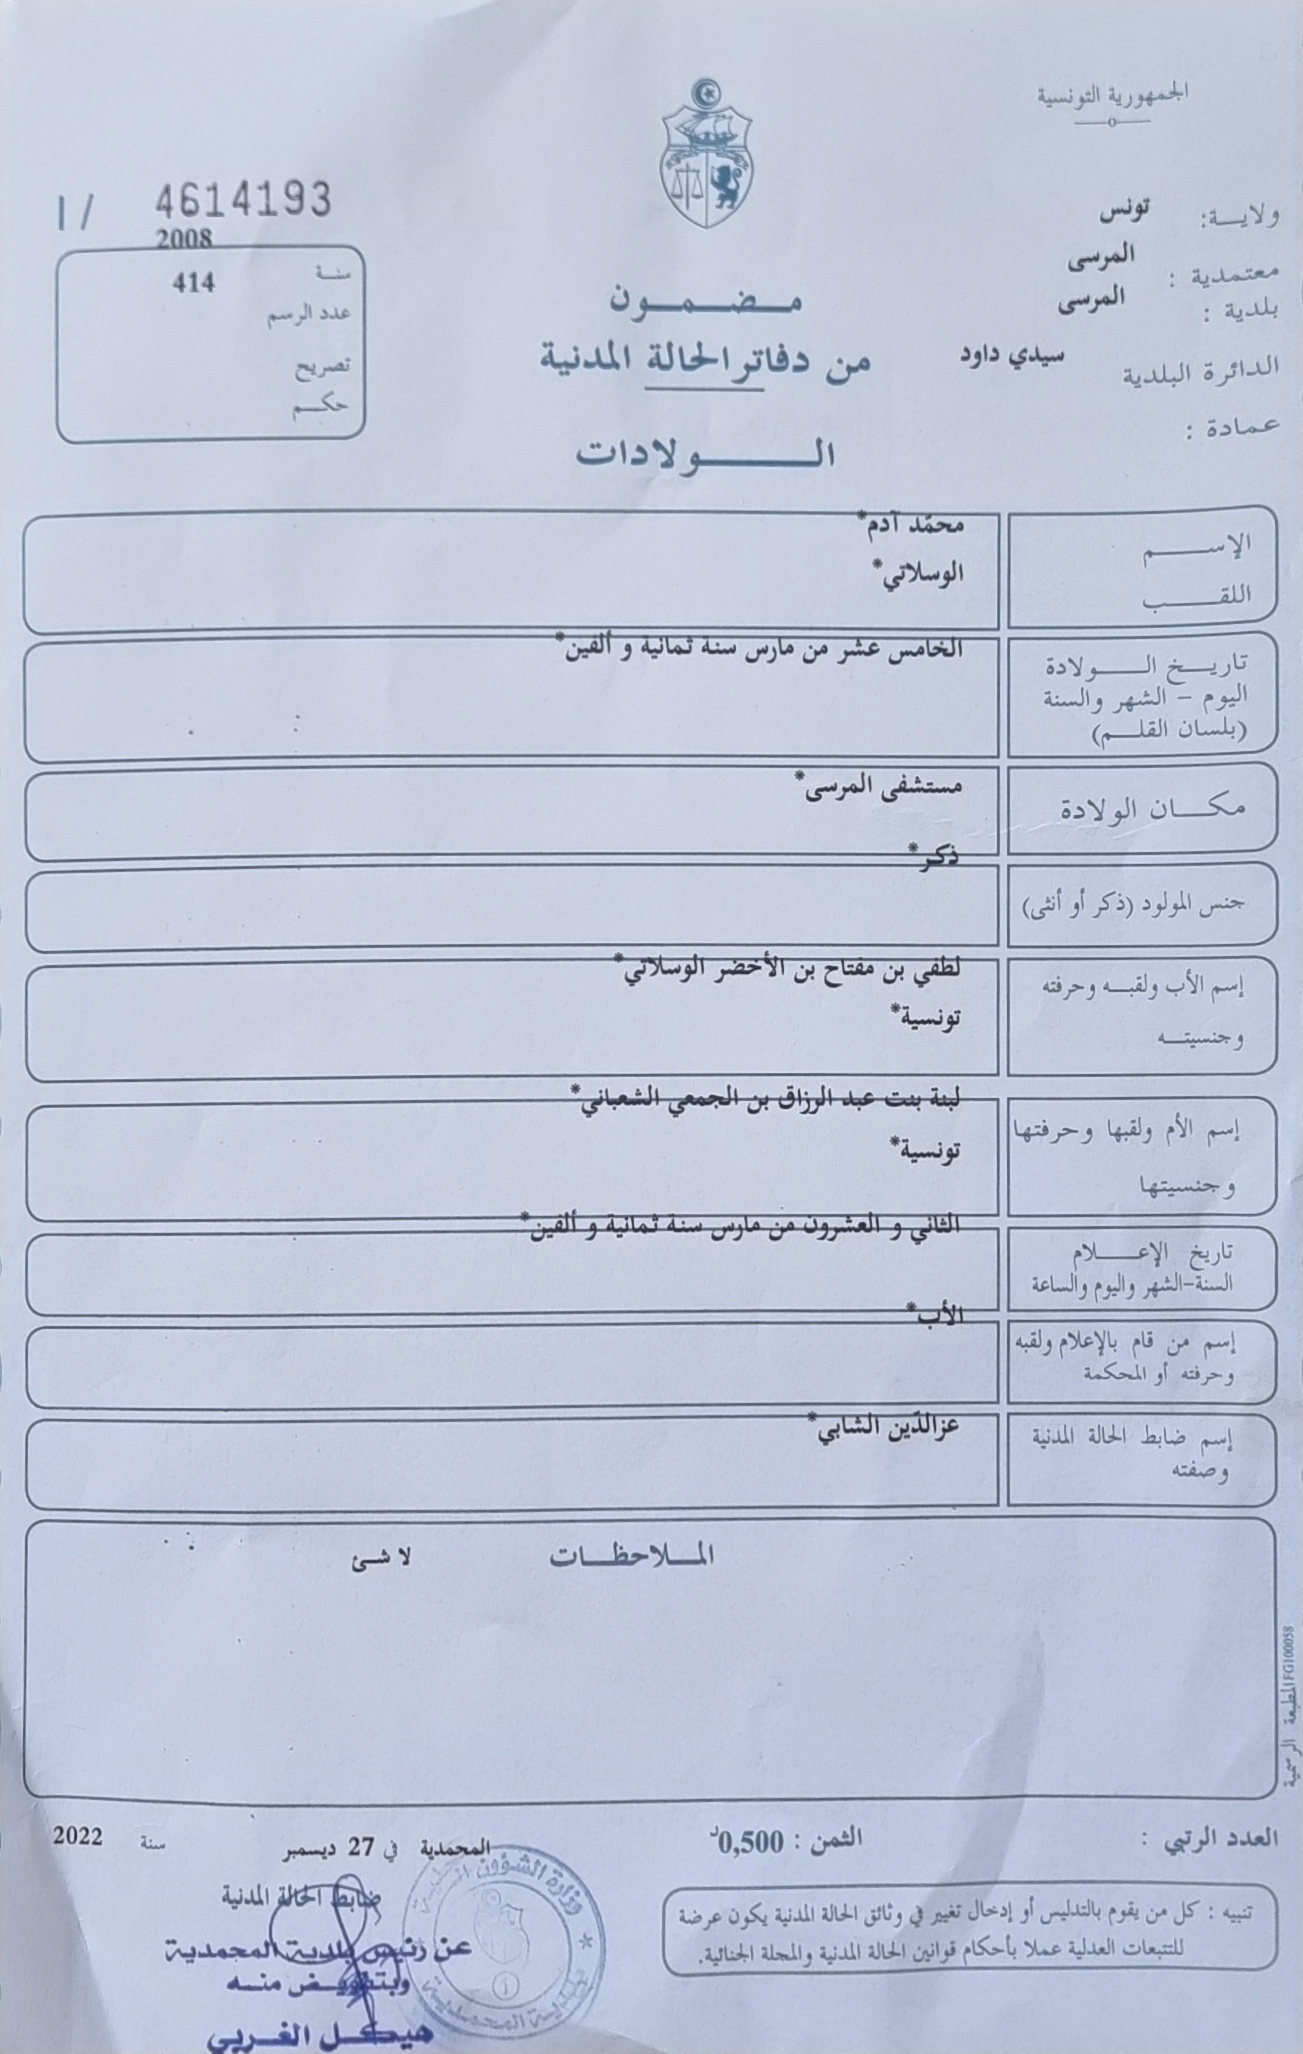 الجمهورية التونسية
ولايـــة: تونس
معتمدية : المرسى
بلدية : المرسى
الدائرة البلدية سيدي داود
عمادة :
مـــضـــمـــــون
من دفاتر الحالة المدنية
الـــــــــولادات
1/ 4614193
2008
سنـة
414
عدد الرسم
تصريح
حكـــم
الإســــــم محمّد آدم*
اللقــــــب الوسلاتي*
تاريــخ الـــــولادة الخامس عشر من مارس سنة ثمانية و ألفين*
اليوم - الشهر والسنة
(بلسان القلـــم)
مكـــان الولادة مستشفى المرسى*
ذكر*
جنس المولود (ذكر أو أنثى)
إسم الأب ولقبـــه وحرفته لطفي بن مفتاح بن الأخضر الوسلاتي*
وجنسيتــه تونسية*
إسم الأم ولقبها وحرفتها لبنة بنت عبد الرزاق بن الجمعي الشعباني*
وجنسيتها تونسية*
تاريخ الإعـــــلام الثاني و العشرون من مارس سنة ثمانية و ألفين*
السنة-الشهر واليوم والساعة
إسم من قام بالإعلام ولقبه الأب*
وحرفته أو المحكمة
إسم ضابط الحالة المدنية عزالدّين الشابي*
وصفته
المـــلاحظـــات لا شئ
المطبعة الرسمية FG100058
العدد الرتبي :
الثمن : 0,500د
المحمدية في 27 ديسمبر سنة 2022
ضابط الحالة المدنية
عن رئيس بلدية المحمدية
وبتفويض منـــه
هيكل الغربي
وزارة الشؤون المحلية * بلدية المحمدية *
تنبيه : كل من يقوم بالتدليس أو إدخال تغيير في وثائق الحالة المدنية يكون عرضة
للتتبعات العدلية عملا بأحكام قوانين الحالة المدنية والمجلة الجنائية.